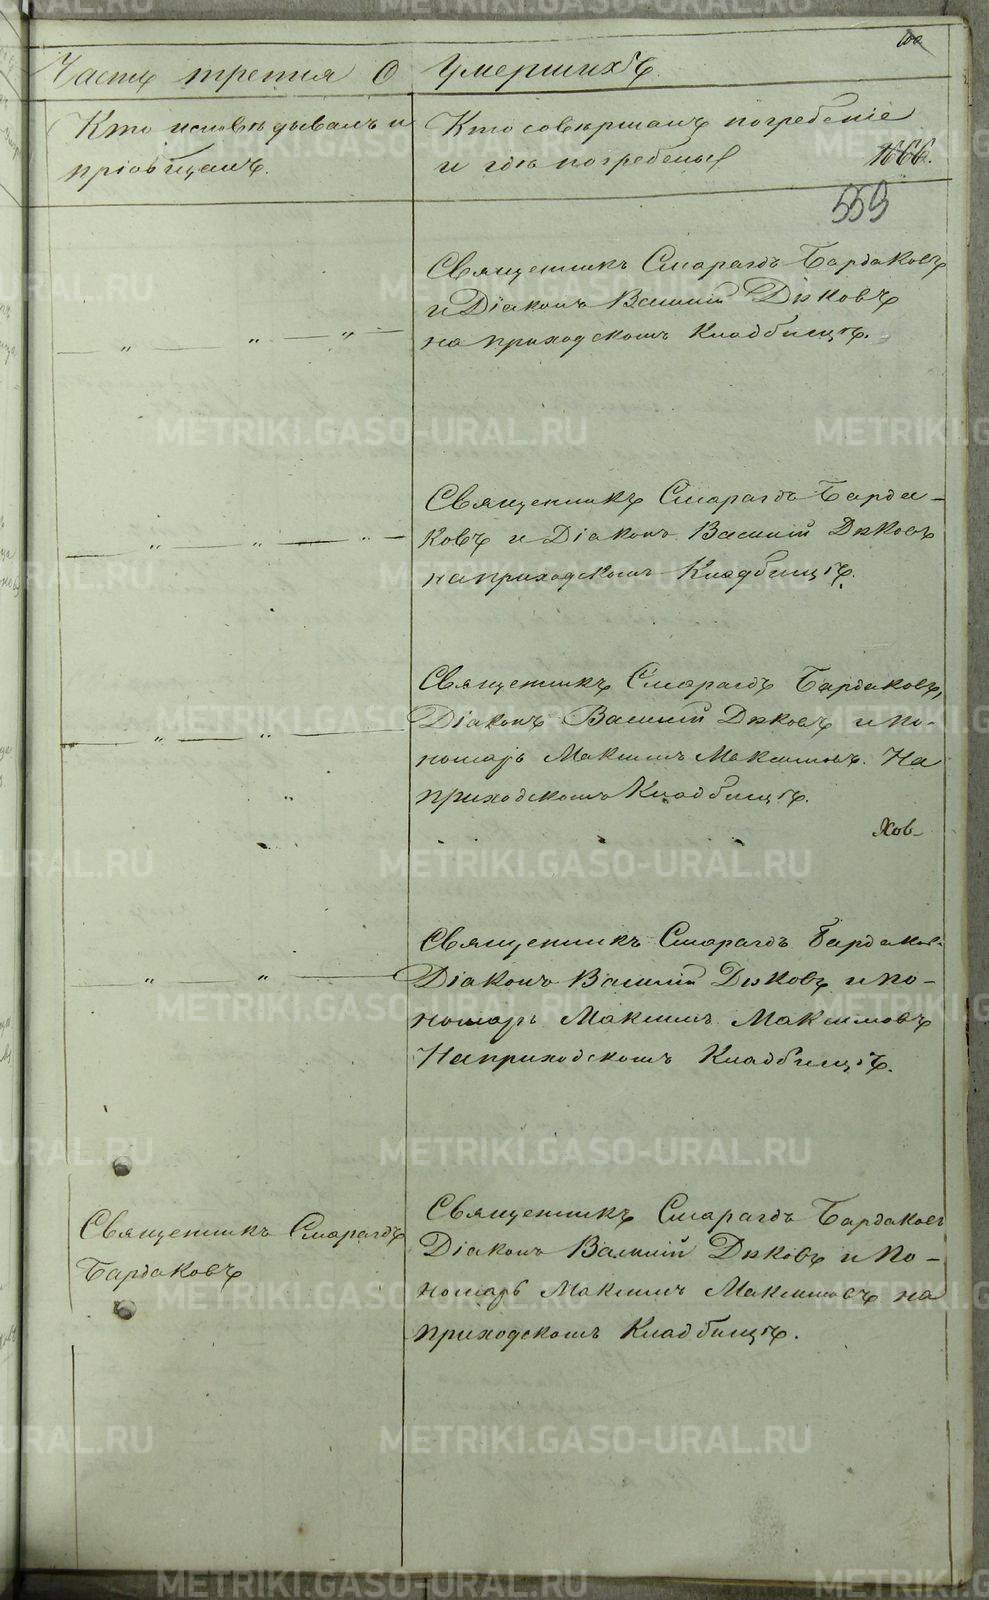 Часть третія О Умершихъ
Кто исповѣдывалъ и
пріобщалъ.
Кто совѣршалъ погребеніе
и гдѣ погребены
166.
559
Священникъ Смарагдъ Бардаковъ
и Діаконъ Василій Дьковъ
на приходскомъ Кладбищѣ.
Священникъ Смарагдъ Барда-
ковъ и Діаконъ Василій Дьковъ
на приходскомъ Кладбищѣ.
Священникъ Смарагдъ Бардаковъ,
Діаконъ Василій Дьковъ и По-
номарь Максимъ Максимовъ. На
приходскомъ Кладбищѣ.
Хов-
Священникъ Смарагдъ Бардаков.
Діаконъ Василій Дьковъ и По-
номарь Максимъ Максимовъ
На приходскомъ Кладбищѣ.
Священникъ Смарагдъ
Бардаковъ
Священникъ Смарагдъ Бардаковъ
Діаконъ Василій Дьковъ и По-
номарь Максимъ Максимовъ на
приходскомъ Кладбищѣ.
METRIKI.GASO-URAL.RU